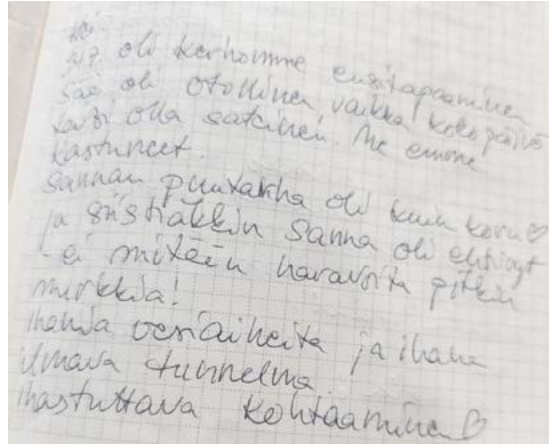 4.7. oli kerhomme ensitapaaminen
Sää oli otollinen vaikka koko päivä
olla sateinen. Me emme
kastuneet.
Sannan puutarha oli kuin koru♡
ja siistiäkin Sanna oli ehtinyt
- ei mitään haravoita pitkin
nurkkia!
Ihania vesiaiheita ja ihana
ilmava tunnelma
Ihastuttava kohtaaminen ♡